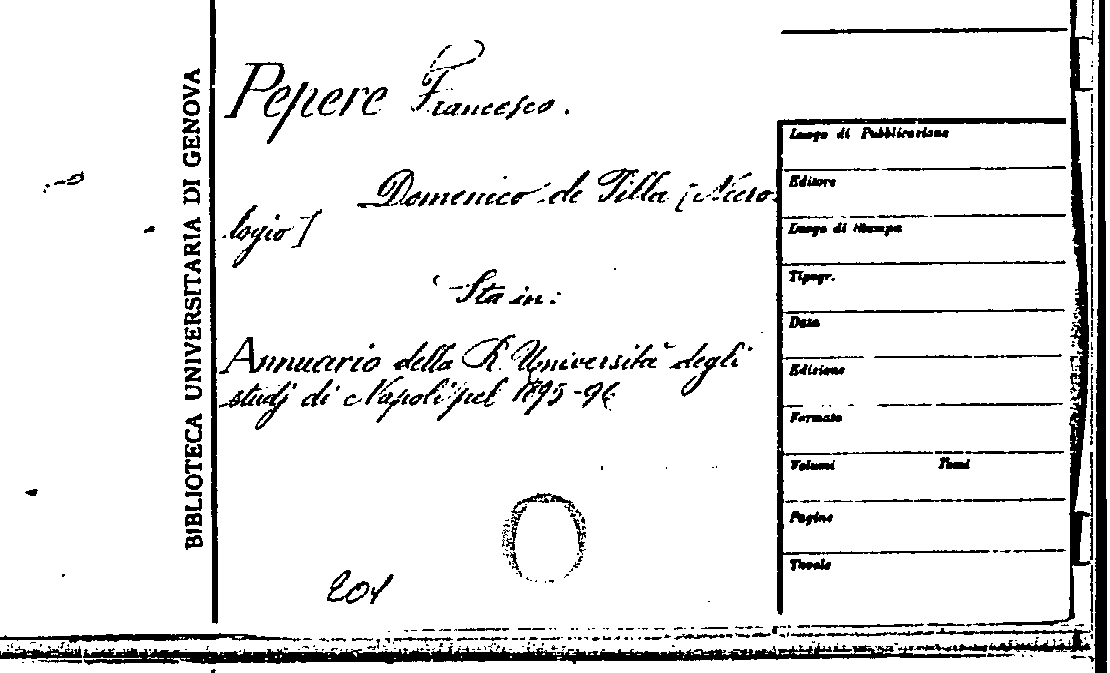 BIBLIOTECA UNIVERSITARIA DI GENOVA
Pepere Francesco.
Domenico de Pilla [Necro-
logio]
Sta in:
Annuario della R. Università degli
studj di Napoli pel 1895-96
201
Luogo di Pubblicazione
Editore
Luogo di Stampa
Tipogr.
Data
Edizione
Formato
Volumi Tomi
Pagine
Tavole